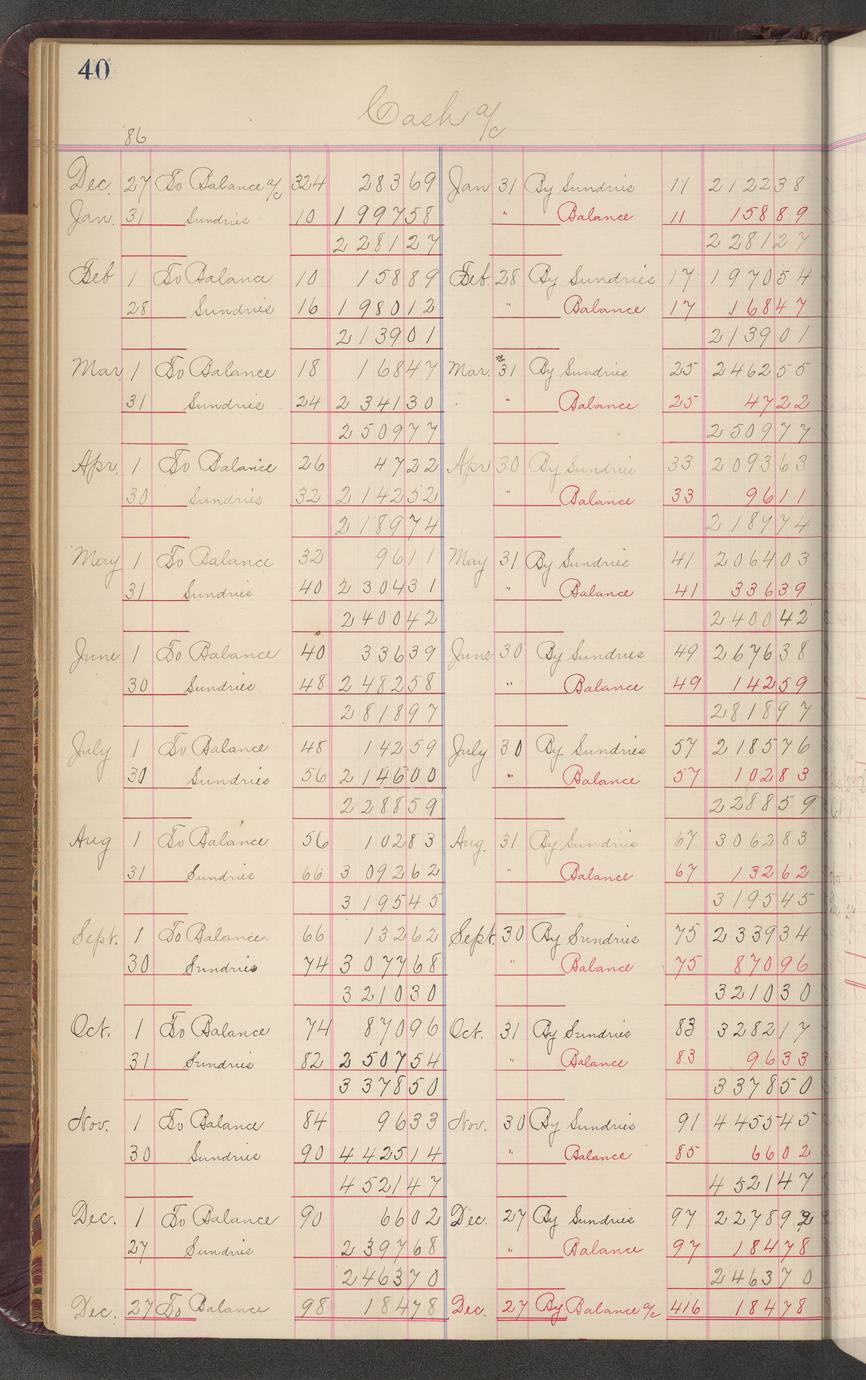 40
Cash a/c
86
Dec. 27 To Balance a/c 324 28369 Jan 31 By Sundries 11 212238
Jan. 31 Sundries 10 199758 " Balance 11 15889
228127 228127
Feb 1 To Balance 10 15889 Feb. 28 By Sundries 17 197054
28 Sundries 16 198012 " Balance 17 16847
213901 213901
Mar 1 To Balance 18 16847 Mar. 31 By Sundries 25 246255
31 Sundries 24 234130 " Balance 25 4722
250977 250977
Apr. 1 To Balance 26 4722 Apr 30 By Sundries 33 209363
30 Sundries 32 214252 " Balance 33 9611
218974 218974
May 1 To Balance 32 9611 May 31 By Sundries 41 206403
31 Sundries 40 230431 " Balance 41 33639
240042 240042
June 1 To Balance 40 33639 June 30 By Sundries 49 267638
30 Sundries 48 248258 " Balance 49 14259
281897 281897
July 1 To Balance 48 14259 July 30 By Sundries 57 218576
30 Sundries 56 214600 " Balance 57 10283
228859 228859
Aug 1 To Balance 56 10283 Aug. 31 By Sundries 67 306283
31 Sundries 66 309262 " Balance 67 13262
319545 319545
Sept. 1 To Balance 66 13262 Sept. 30 By Sundries 75 233934
30 Sundries 74 307768 " Balance 75 87096
321030 321030
Oct. 1 To Balance 74 87096 Oct. 31 By Sundries 83 328217
31 Sundries 82 250754 " Balance 83 9633
337850 337850
Nov. 1 To Balance 84 9633 Nov. 30 By Sundries 91 445545
30 Sundries 90 442514 " Balance 85 6602
452147 452147
Dec. 1 To Balance 90 6602 Dec. 27 By Sundries 97 227892
27 Sundries 239768 " Balance 97 18478
246370 246370
Dec. 27 To Balance 98 18478 Dec. 27 By Balance a/c 416 18478